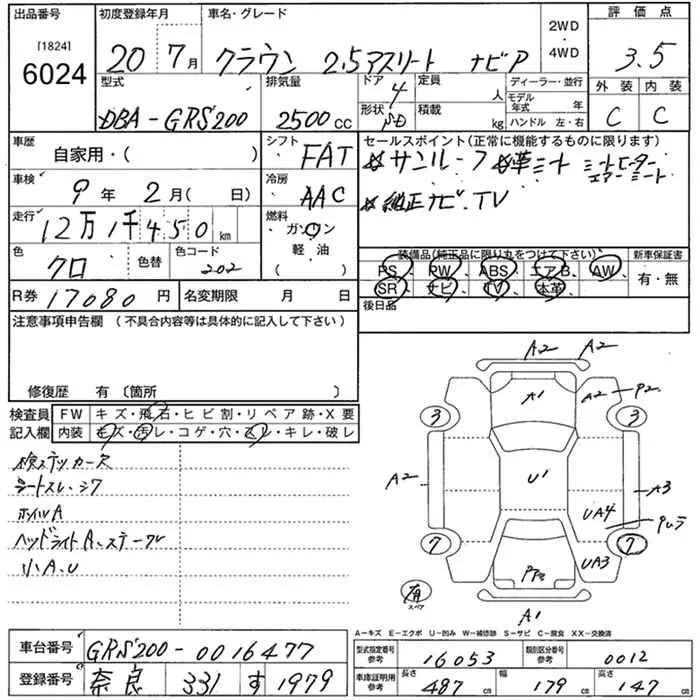 出品番号
[1824]
6024
初度登録年月
20 7月
車名・グレード
クラウン 2.5アスリート ナビP
2WD
・
4WD
評価点
3.5
外装 内装
C C
型式
DBA-GRS200
排気量
2500 cc
ドア 4
形状 SD
定員 人
積載 kg
ディーラー・並行
モデル年式 年
ハンドル 左・右
車歴
自家用・( )
シフト
FAT
車検
9年 2月( 日)
冷房
AAC
走行
12万1千450 km
燃料
ガソリン
軽・油
( )
色
クロ
色替
色コード
202
R券 17080円
名変期限 月 日
セールスポイント(正常に機能するものに限ります)
サンルーフ 革シート シートヒーター
エアーシート
純正ナビ.TV
装備品(純正品に限り丸をつけて下さい)
PS、PW、ABS、エアB、AW、
SR、ナビ、TV、本革、
新車保証書
有・無
後日品
注意事項申告欄 (不具合内容等は具体的に記入して下さい)
修復歴 有〔箇所 〕
検査員記入欄
FW キズ・飛石・ヒビ割・リペア跡・X要
内装 キズ・汚レ・コゲ・穴・スレ・キレ・破レ
検ステッカーズ
シートスレ・シワ
ホイルA
ヘッドライトA、ステークル
小A、U
A2 A2
A1
A2 P2
3 3
A2 U1 A3
UA4
7 7
UA3
有
スペア
A1
A－キズ E－エクボ U－凹み W－補修跡 S－サビ C－腐食 XX－交換済
車台番号 GRS200-0016477
登録番号 奈良 331 す 1979
型式指定番号
参考
16053
類別区分番号
参考
0012
車庫証明用
参考
長さ 487 cm
幅 179 cm
高さ 147 cm